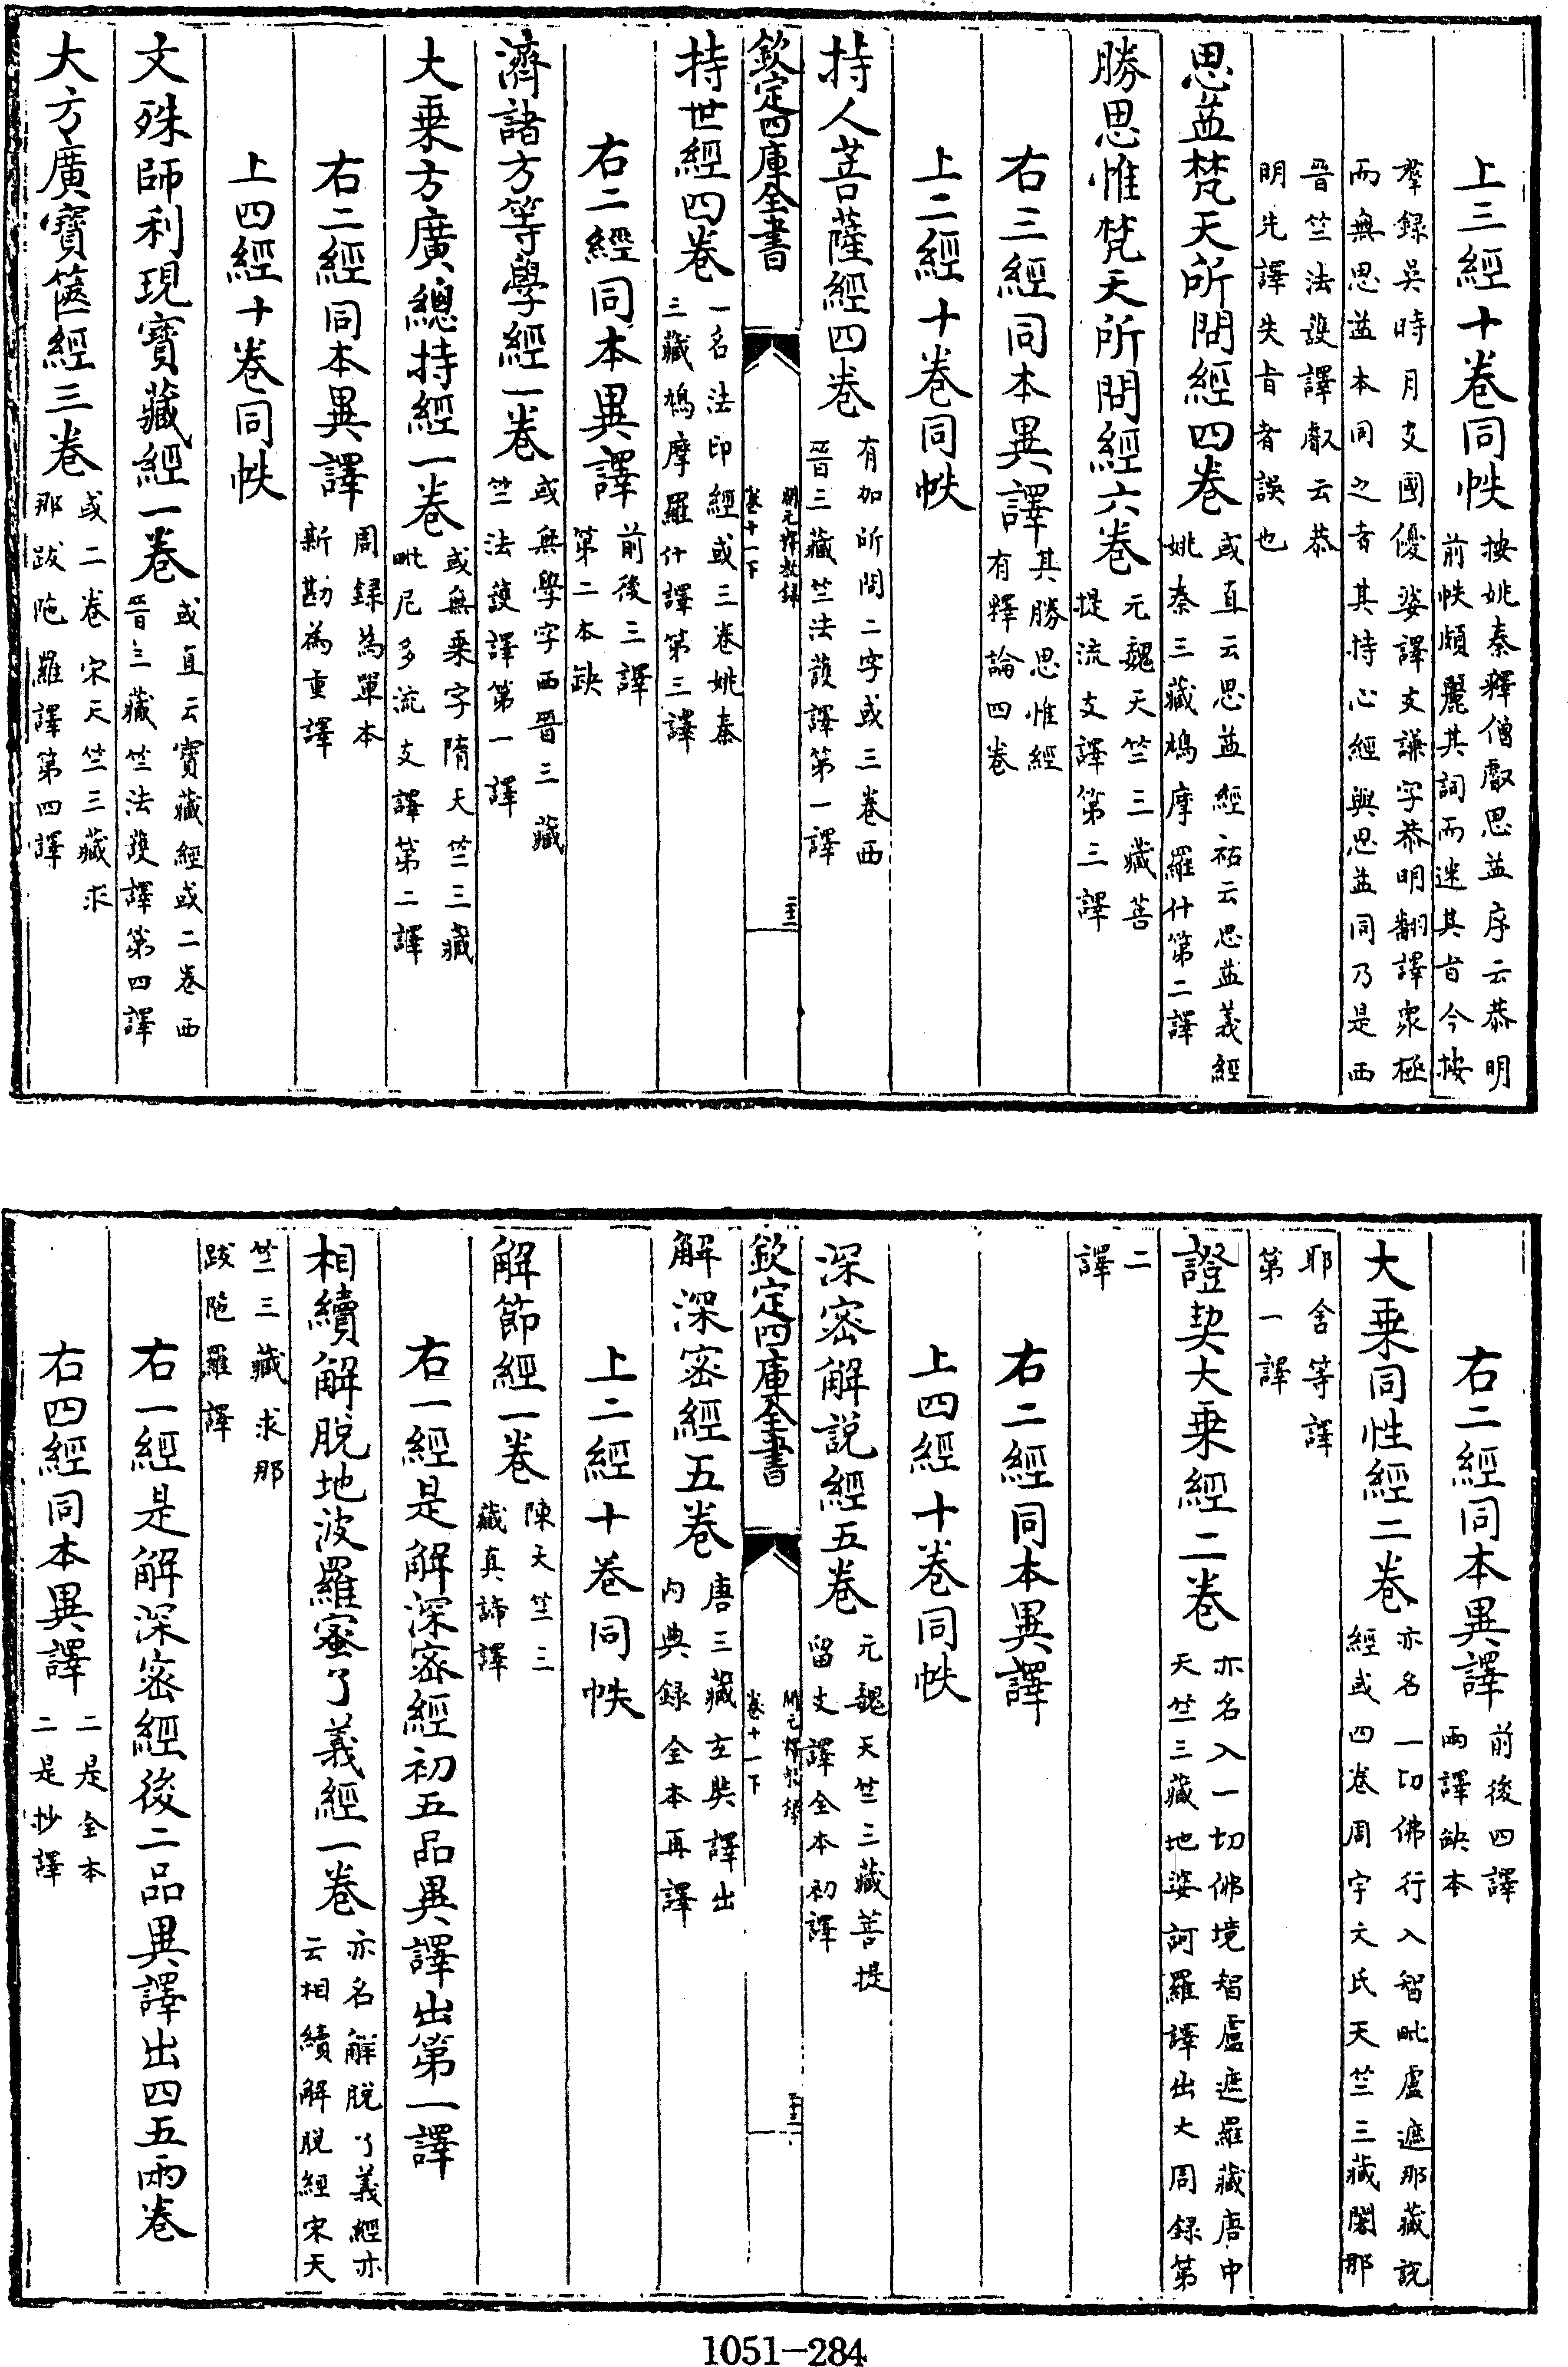 上三經十卷同帙按姚秦釋僧叡思益序云恭明
前帙頗麗其詞而迷其旨今按
羣録吳時月支國優婆譯支謙字恭明翻譯衆極
而無思益本同之者其持心經與思益同乃是西
晉竺法護譯叡云恭
明先譯失旨者誤也
思益梵天所問經四卷或直云思益經祐云思益義經
姚秦三藏鳩摩羅什第二譯
勝思惟梵天所問經六卷元魏天竺三藏菩
提流支譯第三譯
右三經同本異譯其勝思惟經
有釋論四卷
上二經十卷同帙
持人菩薩經四卷有加所問二字或三卷西
晉三藏竺法護譯第一譯
欽定四庫全書
開元釋教録
卷十一下
持世經四卷一名法印經或三卷姚秦
三藏鳩摩羅什譯第三譯
右二經同本異譯前後三譯
第二本缺
濟諸方等學經一卷或無學字西晉三藏
竺法護譯第一譯
大乗方廣總持經一卷或無乗字隋天竺三藏
毗尼多流支譯第二譯
右二經同本異譯周録為單本
新勘為重譯
上四經十卷同帙
文殊師利現寶藏經一卷或直云寶藏經或二卷西
晉三藏竺法護譯第四譯
大方廣寶篋經三卷或二卷宋天竺三藏求
那跋陁羅譯第四譯
右二經同本異譯前後四譯
兩譯缺本
大乗同性經二卷亦名一切佛行入智毗盧遮那藏説
經或四卷周宇文氏天竺三藏闍那
耶舍等譯
第一譯
證契大乗經二卷亦名入一切佛境智盧遮羅藏唐中
天竺三藏地婆訶羅譯出大周録第
二
譯
右二經同本異譯
上四經十卷同帙
深密解說經五卷元魏天竺三藏菩提
留支譯全本初譯
欽定四庫全書
開元釋教録
卷十一下
解深密經五卷唐三藏玄奘譯出
内典録全本再譯
上二經十卷同帙
解節經一卷陳天竺三
藏真諦譯
右一經是解深密經初五品異譯出第一譯
相續解脫地波羅蜜了義經一卷亦名解脫了義經亦
云相續解脫經宋天
竺三藏求那
跋陁羅譯
右一經是解深密經後二品異譯出四五兩卷
右四經同本異譯二是全本
二是抄譯
1051-284